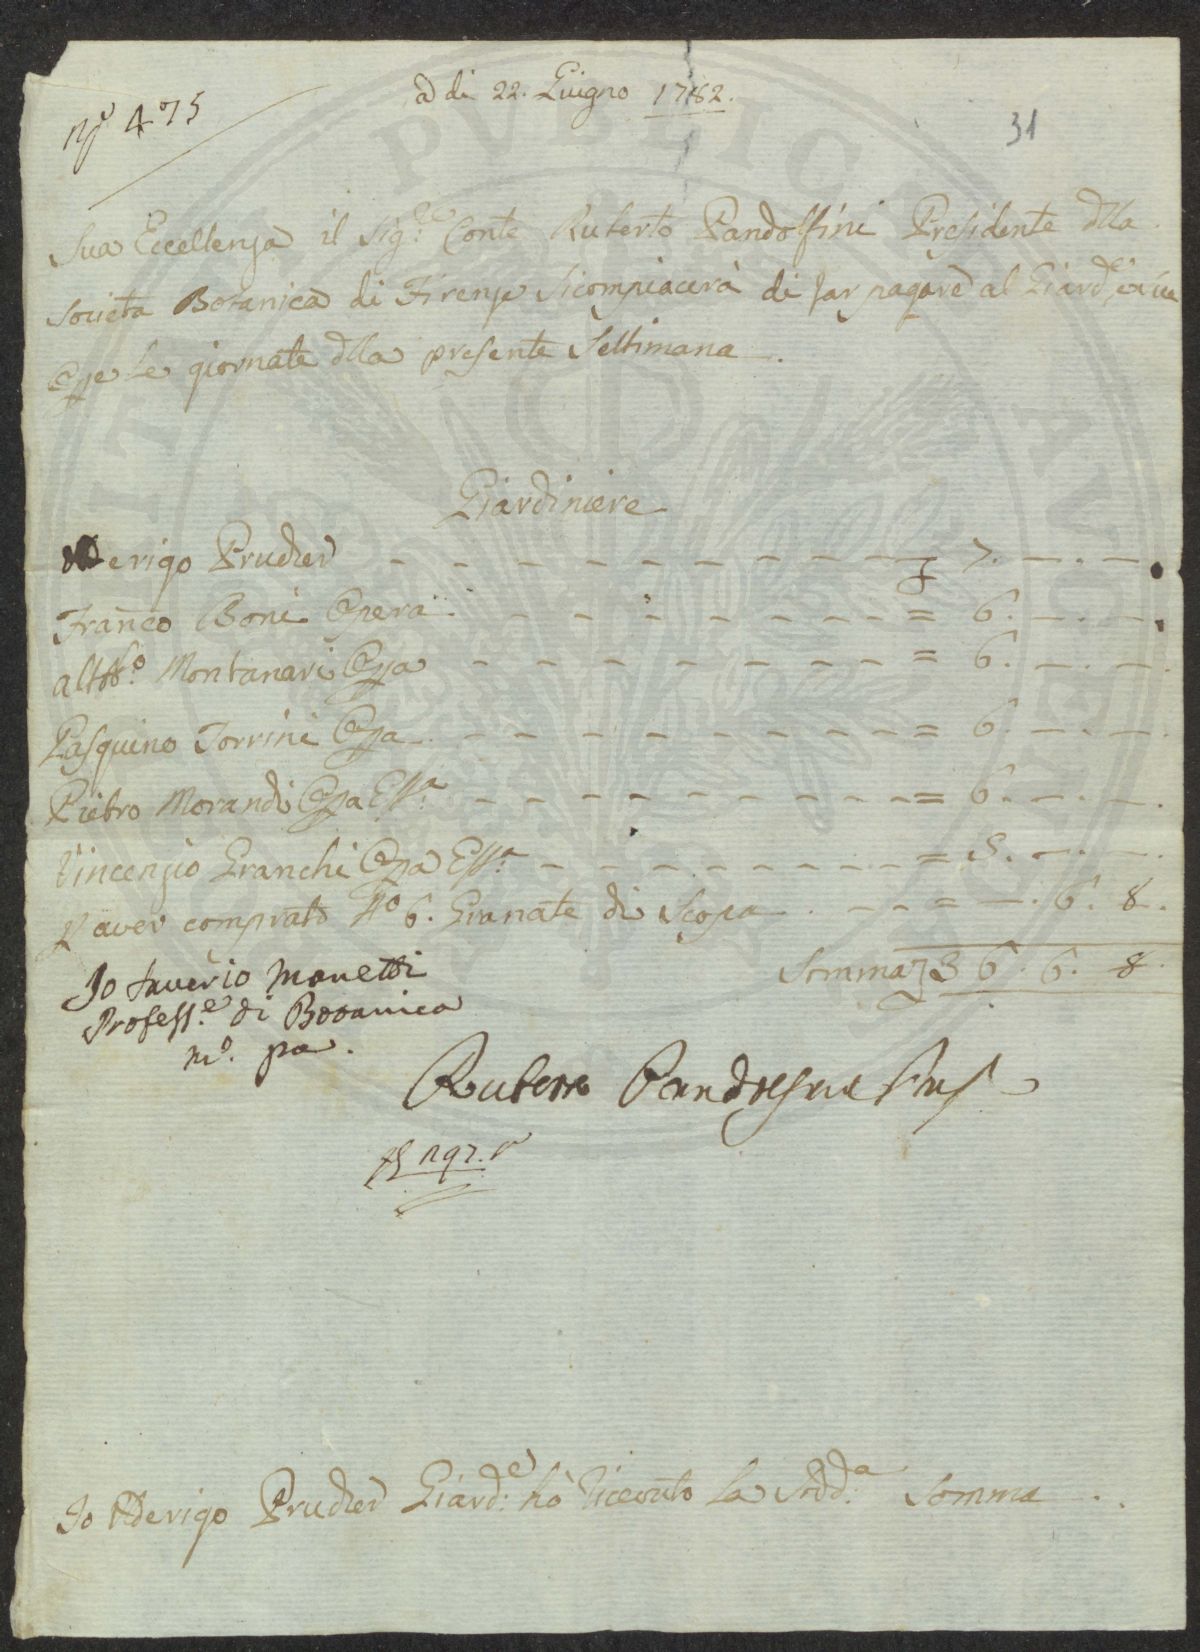 N.º 475
a di 22. Giugno 1782.
31
Sua Eccellenza il Sig.re Conte Ruberto Pandolfini Presidente dlla
Società Botanica di Firenze Si compiacerà di far pagare al Giard.e
Ope le giornate dlla presente Settimana.
Giardiniere
Aderigo Prucker = 7. —. —.
Franco Boni Opera = 6. —. —.
Montanari Opa = 6. —. —.
Pasquino Torrini Opa = 6. —. —.
Pietro Morandi Opa = 6. —. —.
Vincenzio Granchi Opa = 5. —. —.
P aver comprato No 6. Granate di Scopa = —. 6. 8.
Somma 36. 6. 8.
Io Saverio Manetti
Profess.e di Botanica
m.º pa.
Ruberto Pandolfini
Io Aderigo Prucker Giard.e hò riceuto la Sudd.a Somma